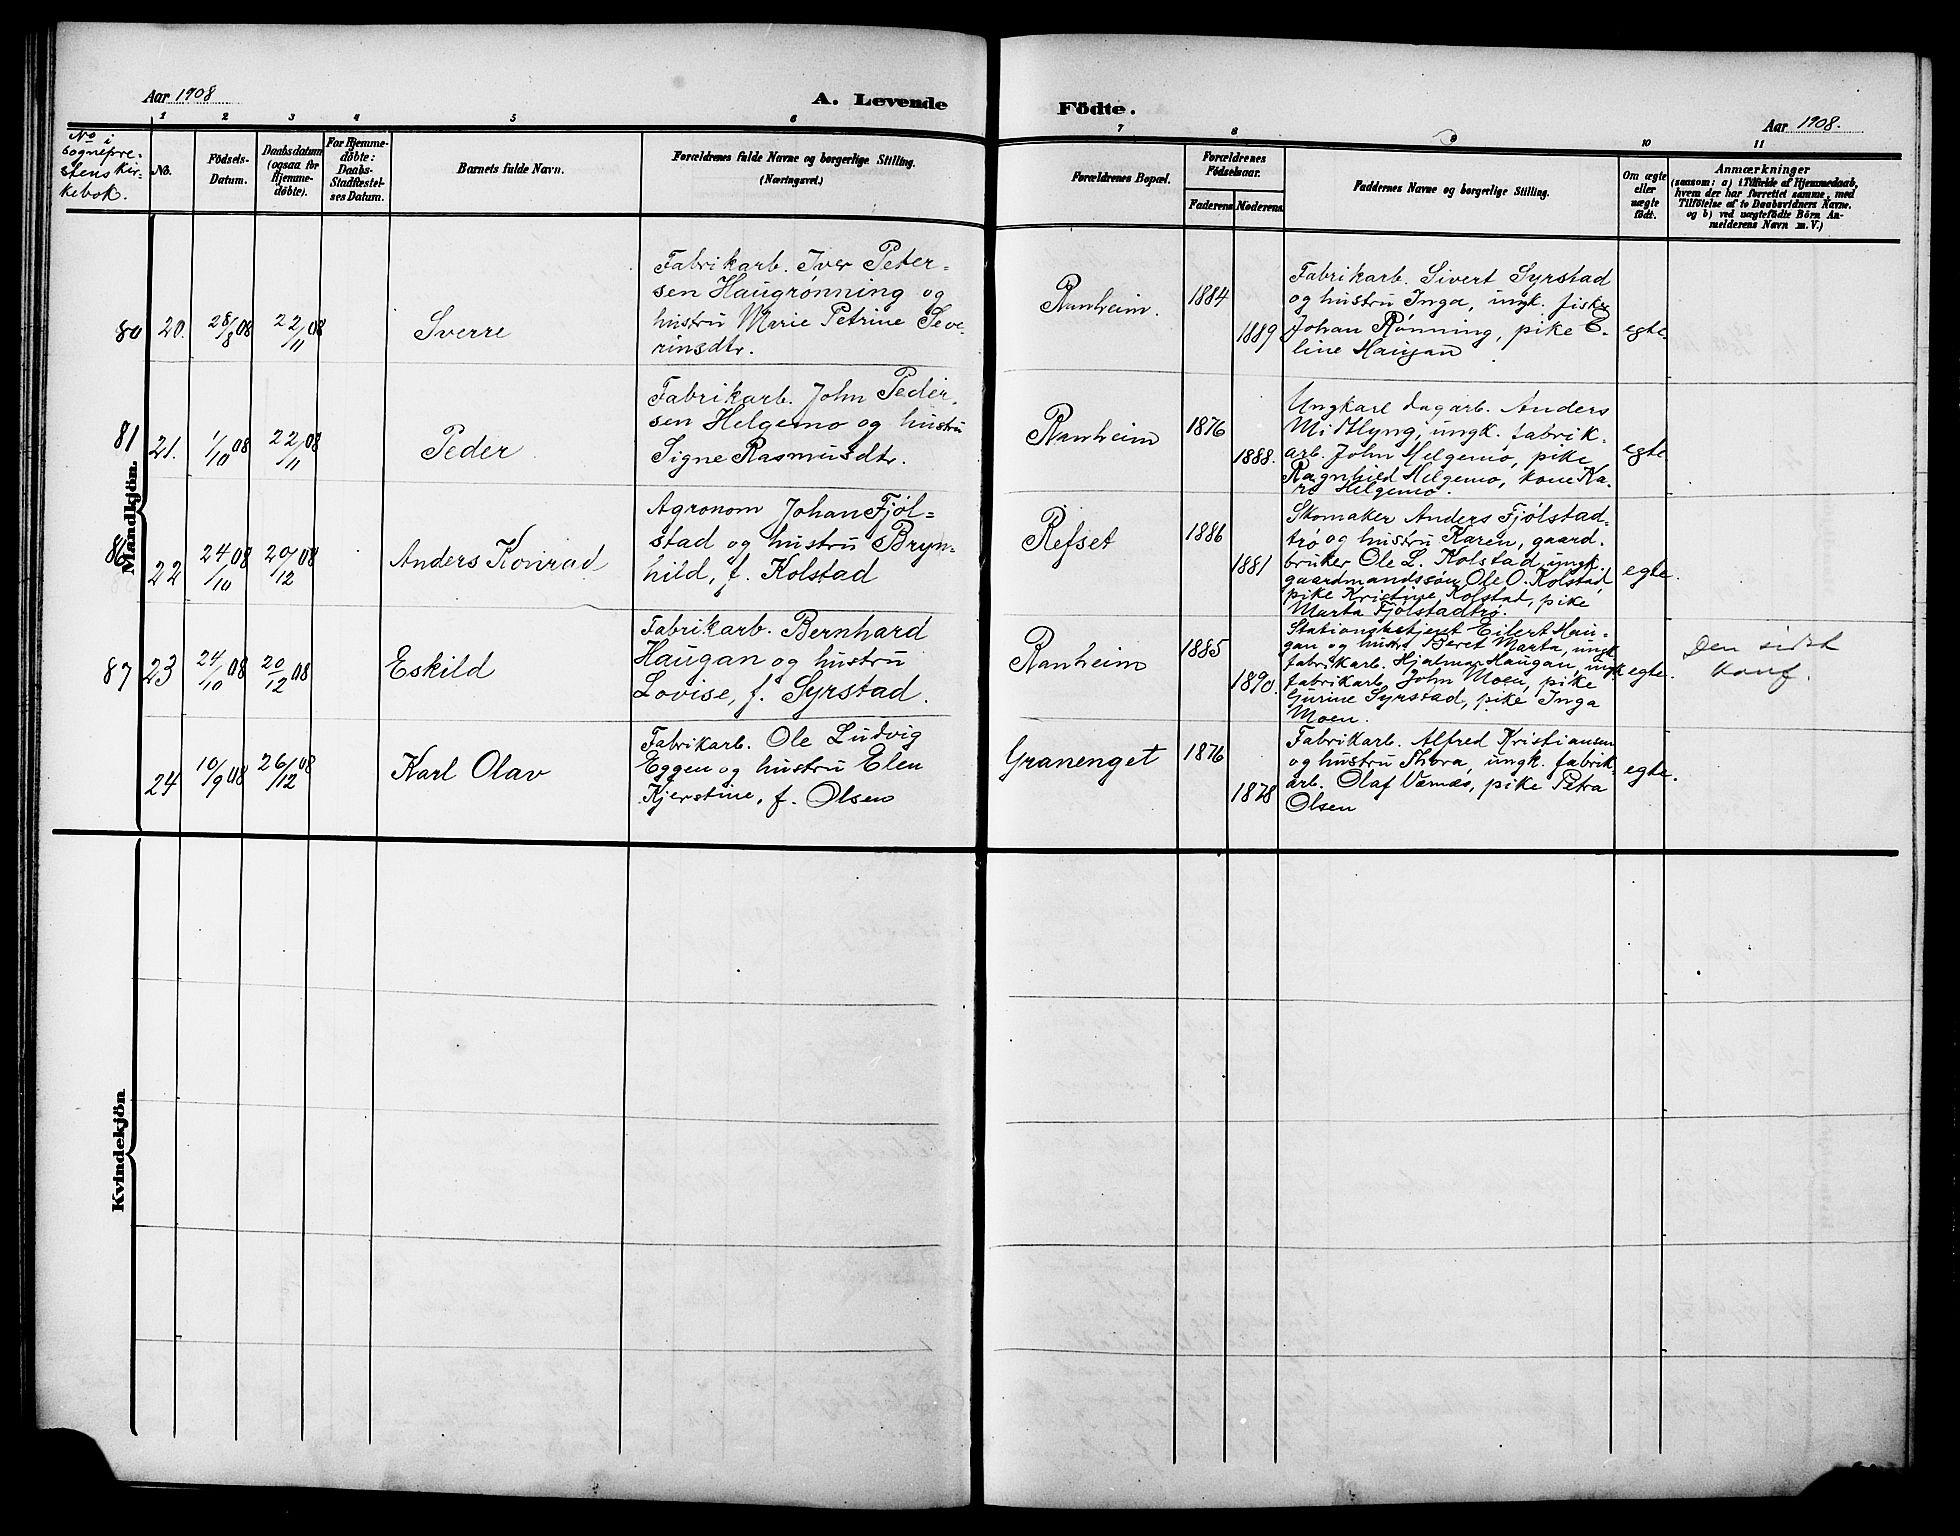 Aar 1908
A. Levende
Födte.
Aar 1908.
1 2 3 4 5 6 7 8 9 10 11
No i
sognepre-
stens kir-
kebok.
No.
Födsels-
Datum.
Daabsdatum
(ogsaa for
Hjemme-
döbte).
For Hjemme-
döbte:
Daabs-
Stadfæstel-
ses Datum.
Barnets fulde Navn.
Forældrenes fulde Navne og borgerlige Stilling.
(Næringsvei.)
Forældrenes Bopæl.
Forældrenes
Födselsaar.
Faderens
Moderens
Faddernes Navne og borgerlige Stilling.
Om ægte
eller
uægte
födt.
Anmærkninger
(saasom: a) i Tilfælde af Hjemmedaab,
hvem der har forrettet samme, med
Tilföielse af to Daabsvidners Navne.
og b) ved uægtefödte Börn An-
melderens Navn m. V.)
Mandkjön.
80
20.
28/8 08
22/11 08
Sverre
Fabrikarb. Iver Peter-
sen Haugrønning og
hustru Marie Petrine Seve-
rinsdtr.
Ranheim.
1884
1889
Fabrikarb. Sivert Syrstad
og hustru Inga, ungk. fisker
Johan Rønning, pike E-
line Haugan
egte.
81
21.
1/10 08
22/11 08
Peder
Fabrikarb. John Peder-
sen Helgemo og hustru
Signe Rasmusdtr.
Ranheim
1876
1888.
Ungkarl dagarb. Anders
Midtlyng, ungk. fabrik-
arb. John Helgemo, pike
Ragnhild Helgemo, kone Ka-
ri Helgemo.
egte
86
22
24/10 08
20/12 08
Anders Konrad
Agronom Johan Fjøl-
stad og hustru Bryn-
hild, f. Kolstad
Refset
1886
1881
Skomaker Anders Fjølstad-
trø og hustru Karen, gaard-
bruker Ole L. Kolstad, ungk.
gaardmandssøn Ole O. Kolstad,
pike Kristine Kolstad, pike
Marta Fjølstadtrø.
egte.
87
23
24/10 08
20/12 08
Eskild
Fabrikarb. Bernhard
Haugan og hustru
Lovise, f. Syrstad.
Ranheim
1885
1890.
Stationsbetjent Eilert Hau-
gan og hustr. Beret Marta, ungk.
fabrikarb. Hjalmar Haugan, ungk.
fabrikarb. John Moen, pike
Gurine Syrstad, pike Inga
Moen.
egte.
Den sidst
konf.
24
10/9 08
26/12 08
Karl Olav
Fabrikarb. Ole Ludvig
Eggen og hustru Elen
Kjerstine, f. Olsen
Granenget
1876
1878
Fabrikarb. Alfred Kristiansen
og hustru Thora, ungk. fabrik-
arb. Olaf Værnes, pike Petra
Olsen
egte.
Kvindekjön